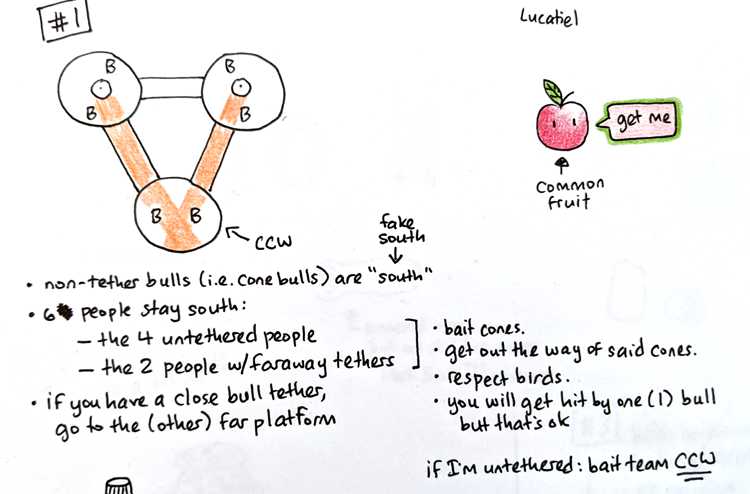 #1
Lucatiel
B
B
B
B
B B
CCW
get me
common
fruit
fake
south
• non-tether bulls (i.e. cone bulls) are "south"
• 6 people stay south:
– the 4 untethered people
– the 2 people w/faraway tethers
• if you have a close bull tether,
go to the (other) far platform
• bait cones.
• get out the way of said cones.
• respect birds.
• you will get hit by one (1) bull
but that's ok
if I'm untethered: bait team CCW